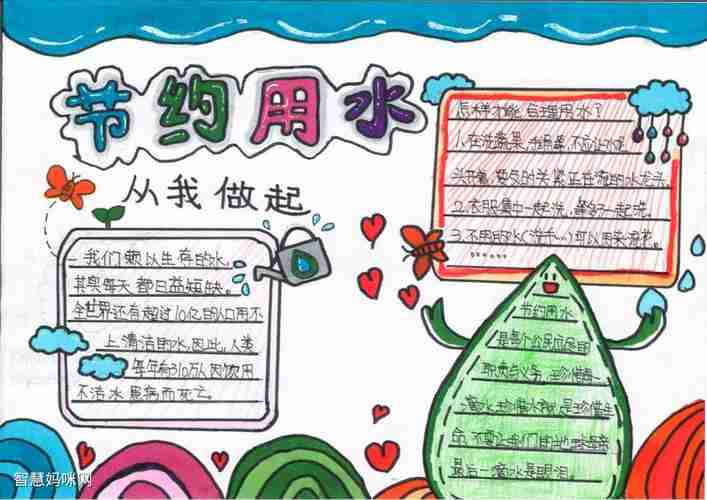 节约用水
从我做起
我们赖以生存的水,
其实每天都日益短缺。
全世界还有超过10亿的人口用不
上清洁的水,因此,人类
每年有310万人因饮用
不洁水患病而死亡。
怎样才能合理用水?
1.在洗蔬果、
头开着,要及时关紧正在流的水龙头。
2.衣服集中一起洗,
3.不用的水(洗手…)可以用来浇花。
……
节约用水
是每个公民应尽的
职责与义务,珍惜每
滴水,珍惜水资源是珍惜生
命,不要让我们
最后一滴水是眼泪
智慧妈咪网